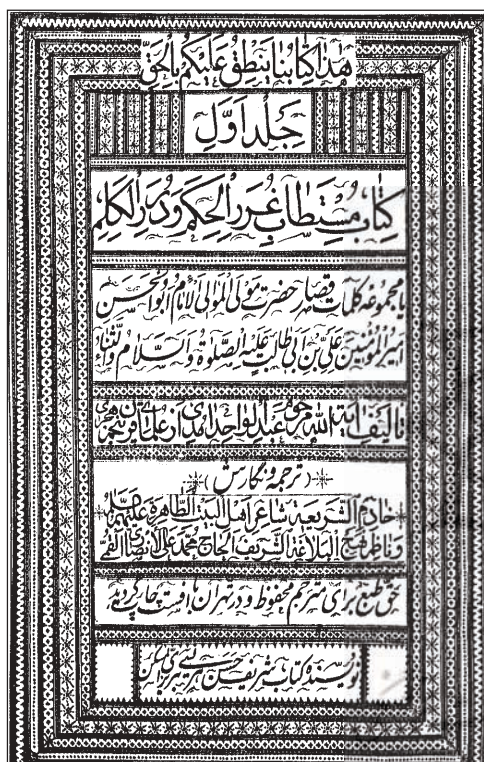 هذا کتابنا ینطق علیکم بالحق
جلد اول
کتاب مستطاب غرر الحکم و درر الکلم
یا مجموعه کلمات قصار حضرت مولی الموالی الامام ابوالحسن
امیرالمؤمنین علی بن ابی طالب علیه الصلوة والسلام والثناء
تالیف آیة الله مرحوم عبدالواحد آمدی از علمای قرن پنجم هجری
(ترجمه و نگارش)
خادم الشریعة شاعر اهل البیت الطاهرة علیهم
و ناظم نهج البلاغة الشریف الحاج محمد علی الانصاری القمی
حق طبع برای مترجم محفوظ و در تهران با افست چاپ گردید
نویسنده کتاب شریف حسن